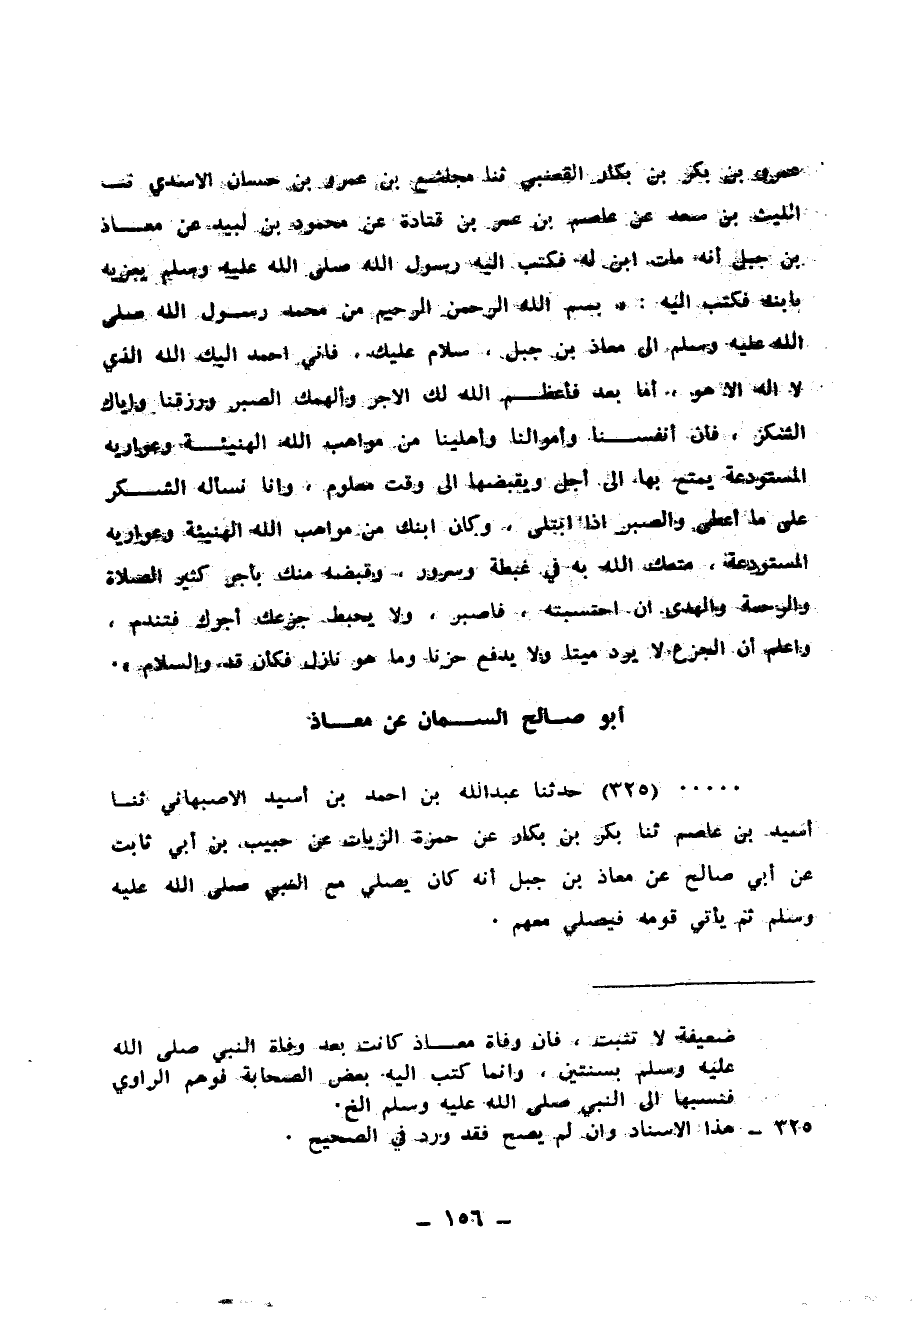 عمرو بن بكر بن بكار القعنبي ثنا مجاشع بن عمرو بن حسان الاسدي ثنــا
الليث بن سعد عن عاصم بن عمر بن قتادة عن محمود بن لبيد عن معــاذ
بن جبل أنه مات ابن له فكتب اليه رسول الله صلى الله عليه وسلم يعزيه
بابنه فكتب اليه : « بسم الله الرحمن الرحيم من محمد رســول الله صلى
الله عليه وسلم الى معاذ بن جبل ، سلام عليك ، فاني احمد اليك الله الذي
لا اله الا هو ، أما بعد فأعظــم الله لك الاجر وألهمك الصبر ورزقنا واياك
الشكر ، فان أنفســنا وأموالنا وأهلينا من مواهب الله الهنيئــة وعواريه
المستودعة يمتع بها الى أجل ويقبضها الى وقت معلوم ، وانا نسأله الشــكر
على ما أعطى والصبر اذا ابتلى ، وكان ابنك من مواهب الله الهنيئة وعواريه
المستودعة ، متعك الله به في غبطة وسرور ، وقبضه منك بأجر كثير الصلاة
والرحمة والهدى ان احتسبته ، فاصبر ، ولا يحبط جزعك أجرك فتندم ،
واعلم أن الجزع لا يرد ميتا ولا يدفع حزنا وما هو نازل فكأن قد والسلام » ·
أبو صــالح الســمان عن معــاذ
····· (٣٢٥) حدثنا عبدالله بن احمد بن أسيد الاصبهاني ثنــا
أسيد بن عاصم ثنا بكر بن بكار عن حمزة الزيات عن حبيب بن أبي ثابت
عن أبي صالح عن معاذ بن جبل أنه كان يصلي مع النبي صلى الله عليه
وسلم ثم يأتي قومه فيصلي معهم ·
ضعيفة لا تثبت ، فان وفاة معــاذ كانت بعد وفاة النبي صلى الله
عليه وسلم بسنتين ، وانما كتب اليه بعض الصحابة فوهم الراوي
فنسبها الى النبي صلى الله عليه وسلم الخ·
٣٢٥ ــ هذا الاسناد وان لم يصح فقد ورد في الصحيح ·
ــ ١٥٦ ــ